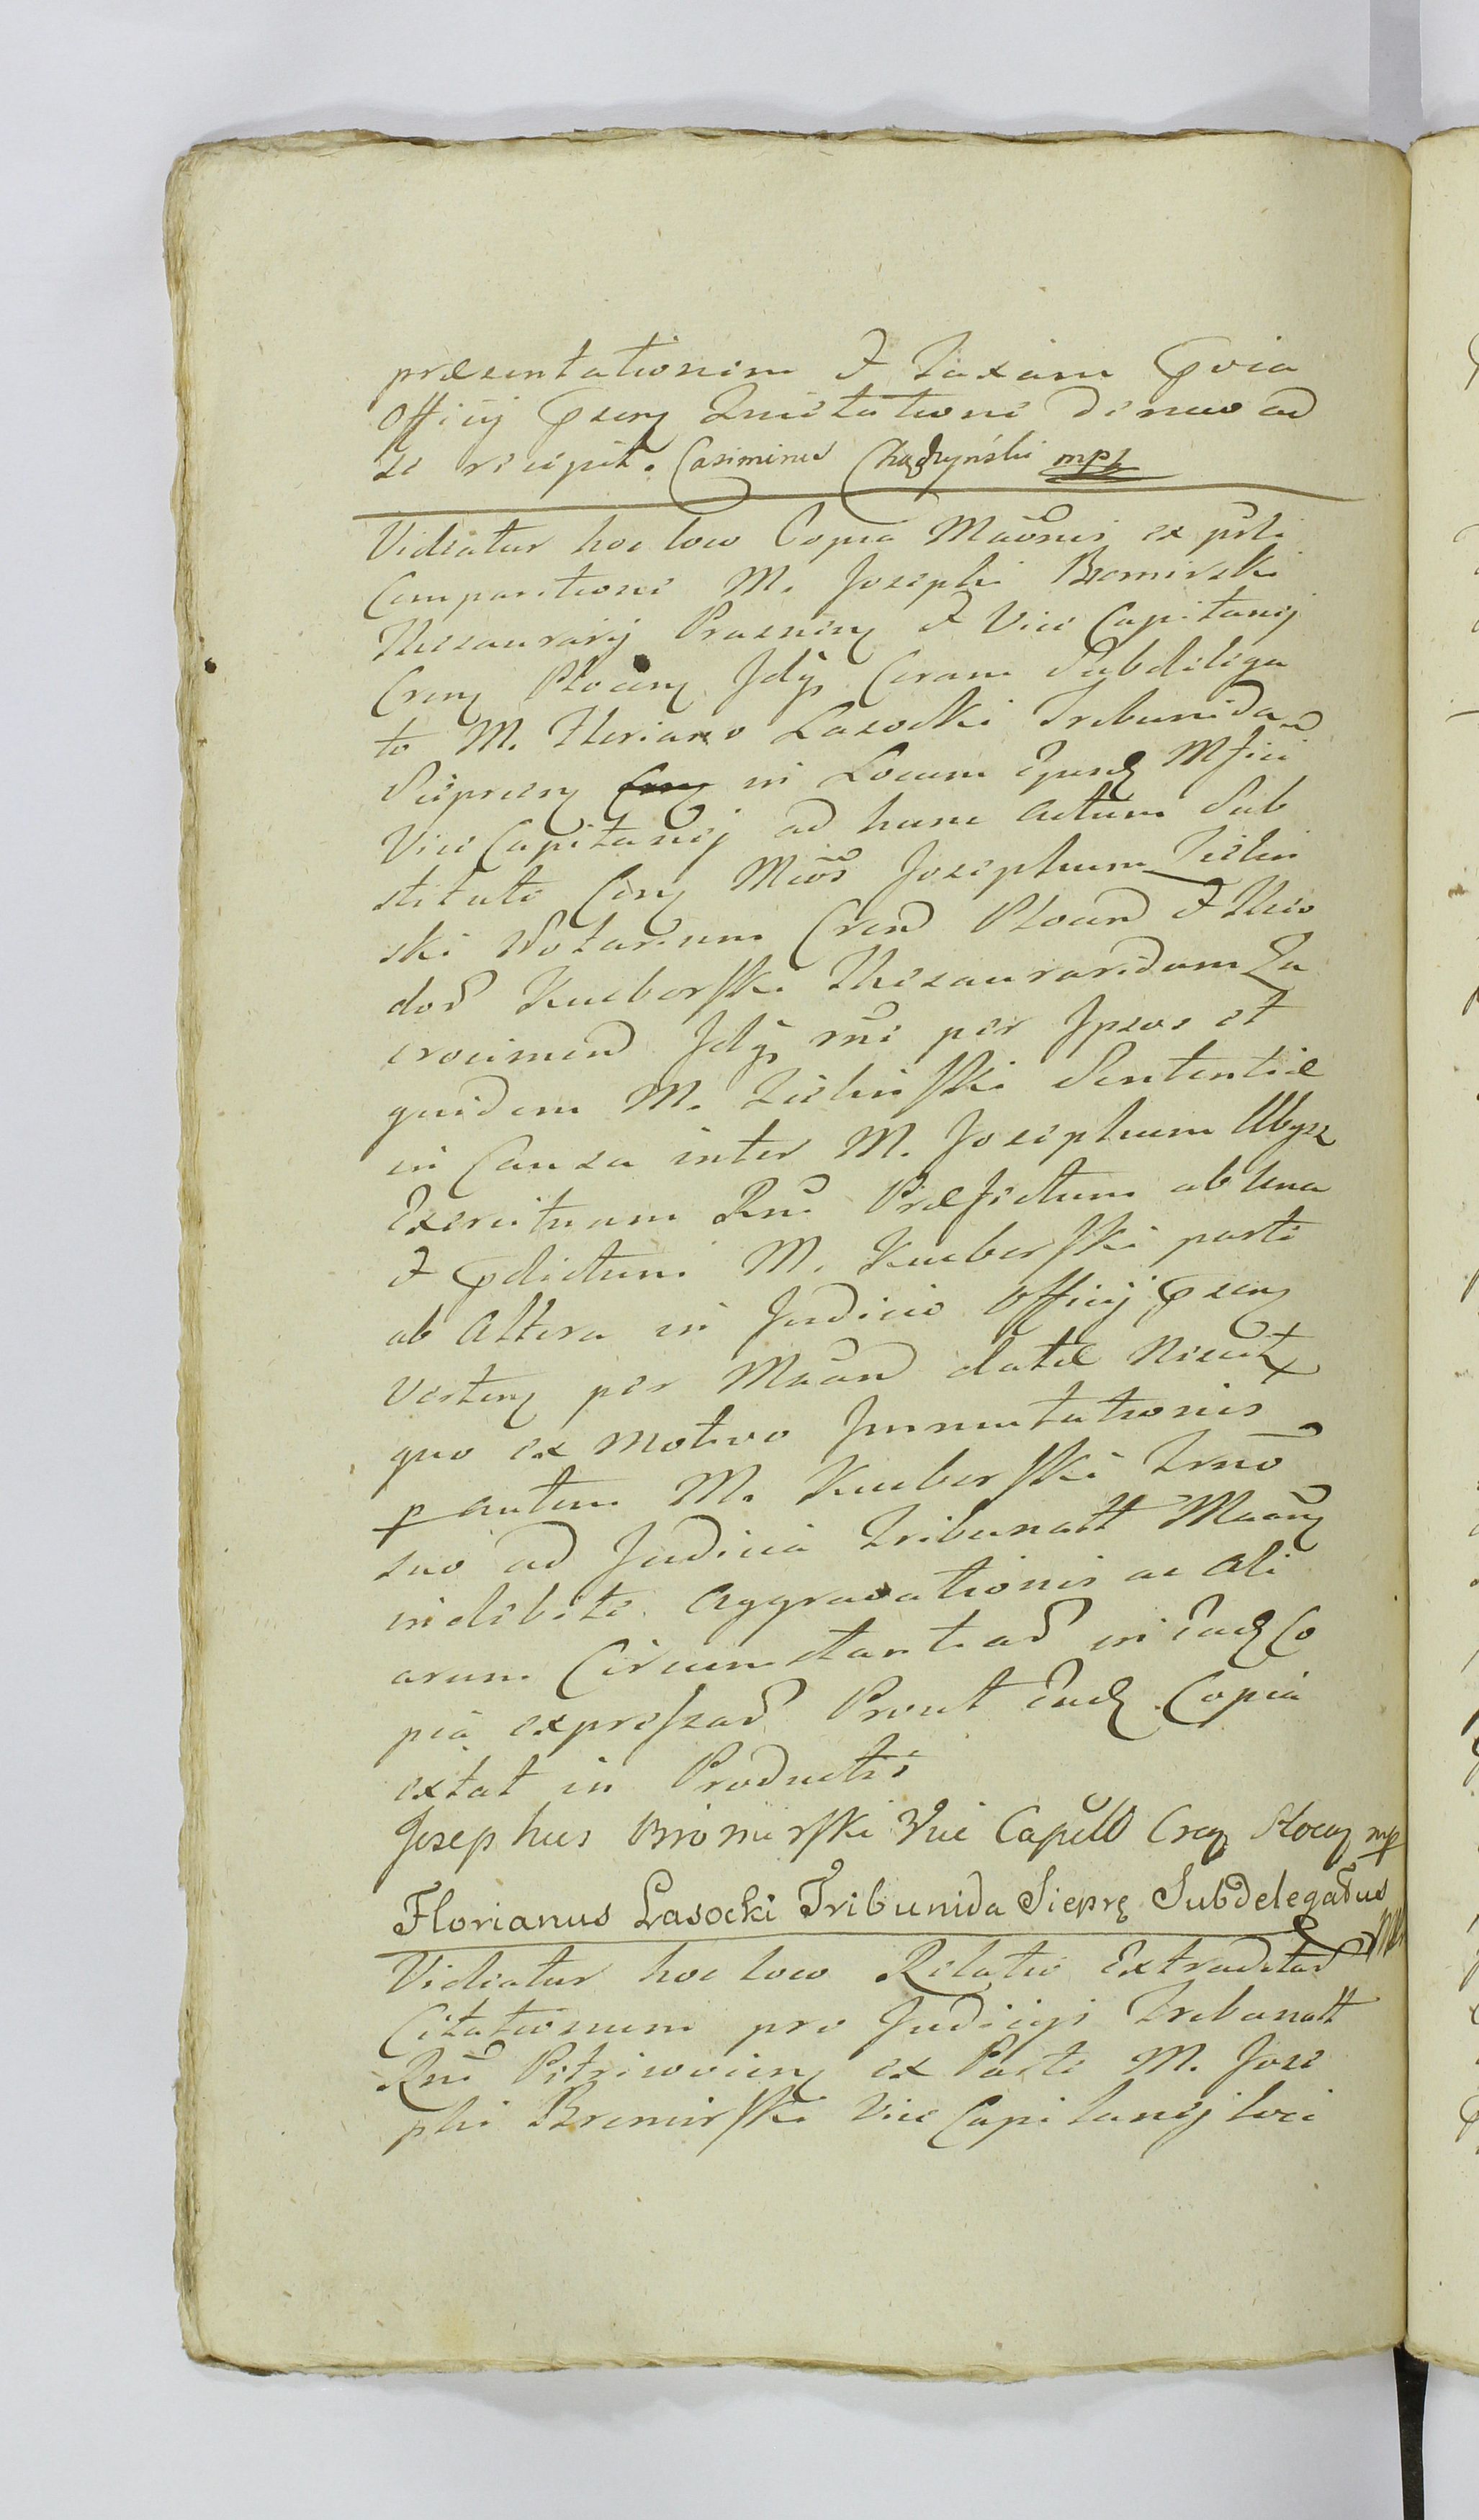 præsentationem & Taxam Qvia
Officij Psens Quietatione denuo ad
se recipit. Casimirus Chądzyński mpp
Videatur hoc loco Copia Maōnis ex psli
Comparitione M. Josephi Bromirski
Thesaurarij Prasnens & Vice Capitanij
Crens Plocens Jdq Coram Subdelega
to M. Floriano Lasocki Tribunida
Sieprcens in Locum Ejusd Mfici
Vice Capitanej ad hunc actum Sub
stituto Cons Mcos Josephum Zielin
ski Notarium Cren Plocen & Theo
dor Kueborski Thesauraridam Za
crocimen Jdq rne per Jpsos et
quidem M. Zielinski Sententiæ
in Causa inter M. Josephum Ubysz
Exercituum Rni Præfectum ab una
& Pdictum M. Kueborski parte
ab Altera in Judicio Officij Psens
Verten per Maan latæ Necnt
quo ex motivo Jmmutationis
p autem M. Kueborski Trmo
suo ad Judicia Tribunalt Maans
indebite Aggravationis ac ali
arum Circumstantiar in Ead Co
pia expressar Prout Ead Copia
extat in Productis
Josephus Bromirski Vice Capitt Crens Plocens mp
Florianus Lasocki Tribunida Sieprę Subdelegatus
Videatur hoc loco Relatio Extraditar
Citationum pro Judicijs Tribunalt
Rni Petricoviens ex Parte M. Jose
phi Bromirski Vice Capitanej loci